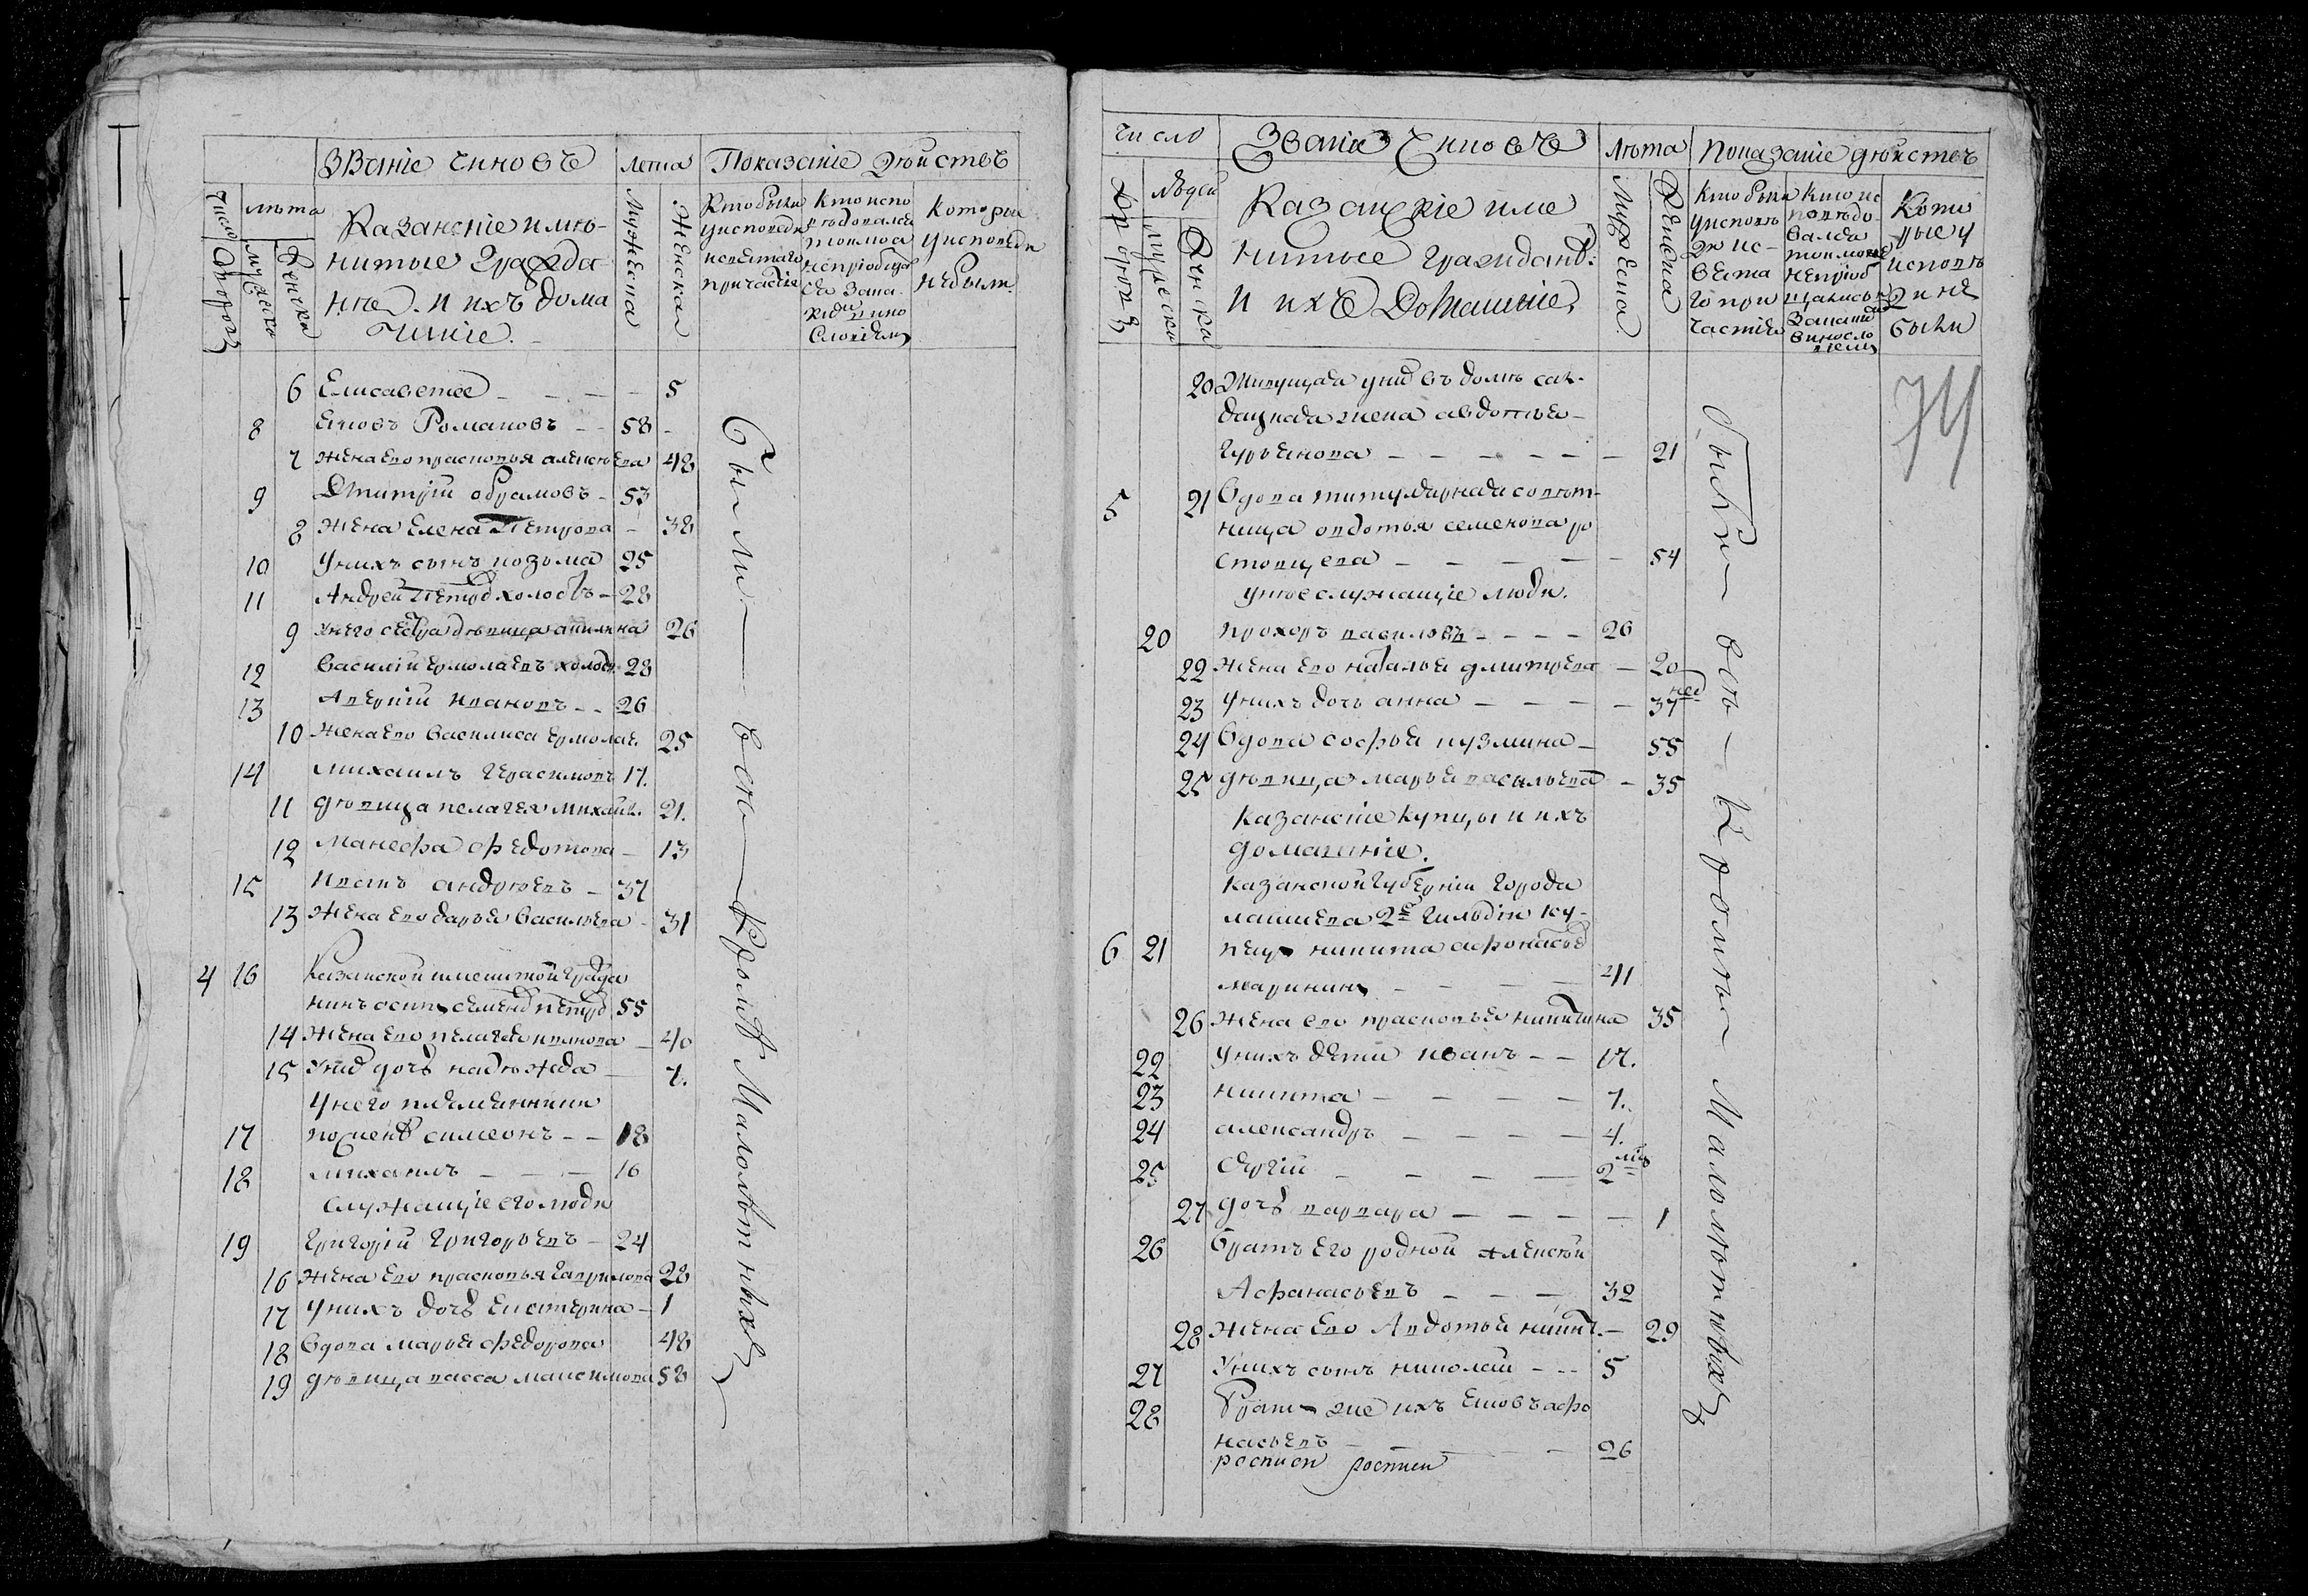 Званіе чиновъ
лета
Показаніе действъ
число
лѣта
дворовъ
мужеска
женска
Казанскіе име-
нитые гражда
не. и ихъ дома
шніе.
мужеска
женская
Кто были
уисповеди
исвятаго
причастія
кто испо
ведовался
токмо а
непріобща
ся зака
кимъ вино
словіемъ
которыи
уисповеди
небыли.
6 Елисавета - - - - 5
8 Еѳовъ Романовъ - - 58 -
7 жена его прасковья алексѣева 48
9 Дмитрій обрамовъ - 53
8 жена Елена Петрова - 38
10 унихъ сынъ козьма 25
11 Андрей Петровъ холостъ - 28
9 унего сестра девица акилина 26
12 василій ермолаевъ холостъ 28
13 Аверкій Ивановъ - - 26
10 жена его василиса ермолае. 25
14 михаилъ герасимовъ 17.
11 девица пелагея михайл. 21.
12 манефа федотова - 13
15 Игнатъ андреевъ - 37
13 жена его дарья васильева - 31
4 16 Казанской именитой гражда
нинъ осипъ семеновъ петровъ 55
14 жена его пелагея иванова - 40
15 унихъ дочь надѣжда - 7.
Унего племянники
17 симеонъ - - 18
18 михаилъ - - - 16
служащіе его люди
19 григорій григорьевъ - 24
16 жена его прасковья гаврилова 28
17 унихъ дочь екатерина - 1
18 вдова марья федорова 48
19 девица васса максимова 58
Были — все — Кроме Малолетныхъ
число
Званіе Чиновъ
лѣта
показаніе действъ
дворовъ
людей
мужеска
женска
Казанскіе име
нитые гражданъ:
и ихъ домашніе,
мужеска
женска
Кто были
уисповѣ
ди ис-
вята
го при
частія
кто ис
поведо-
вался
токмо а
непріоб
щались
закаки
виносло
віемъ
Кото
рые у
исповѣ
ди не
были
74
20 Живущая унихъ въ доме сал-
дацкая жена авдотья
гурьянова - - - - - - 21
5 21 вдова титулярная советъ-
ница овдотья семенова ро
стовцева - - - - - 54
унее служащіе люди.
20 прохоръ васильевъ - - - - 26
22 жена его наталья дмитрева - 20
23 унихъ дочь анна - - - - 37 нед
24 вдова софья кузмина - 55
25 девица марья васильева - 35
казанскіе купцы и ихъ
домашніе.
казанской губерніи города
лаишева 2й гильдіи ку-
6 21 пецъ никита афонасьевъ
маринин - - - - 41
26 жена его прасковья никитина 35
22 унихъ дети иванъ - - 17.
23 никита - - - - 7.
24 александръ - - - - 4.
25 Сергій - - - - 2 мѣс
27 дочь варвара - - - - 1
26 братъ его родной алексѣй
Афанасьевъ - - - 32
28 жена его Авдотья никит. - 29
27 унихъ сынъ николай - - - 5
28 братъ же ихъ Еѳовъ афо
насьевъ - - - - 26
росписи росписи
были — все — Кроме Малолетныхъ